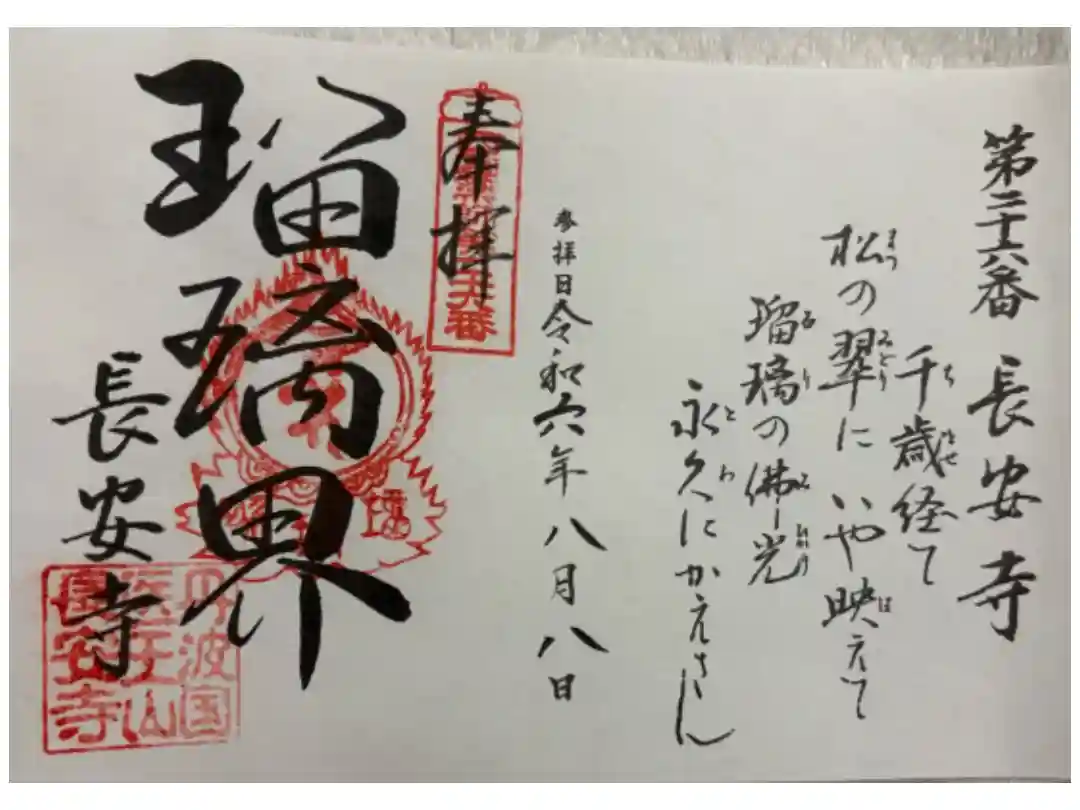 第二十六番 長安寺
千歳経て
松の翠に いや映えて
瑠璃の佛光
永久にかえさん
参拝日 令和六年 八月 八日
奉拝
瑠璃界
長安寺
丹波国
医王山
長安寺